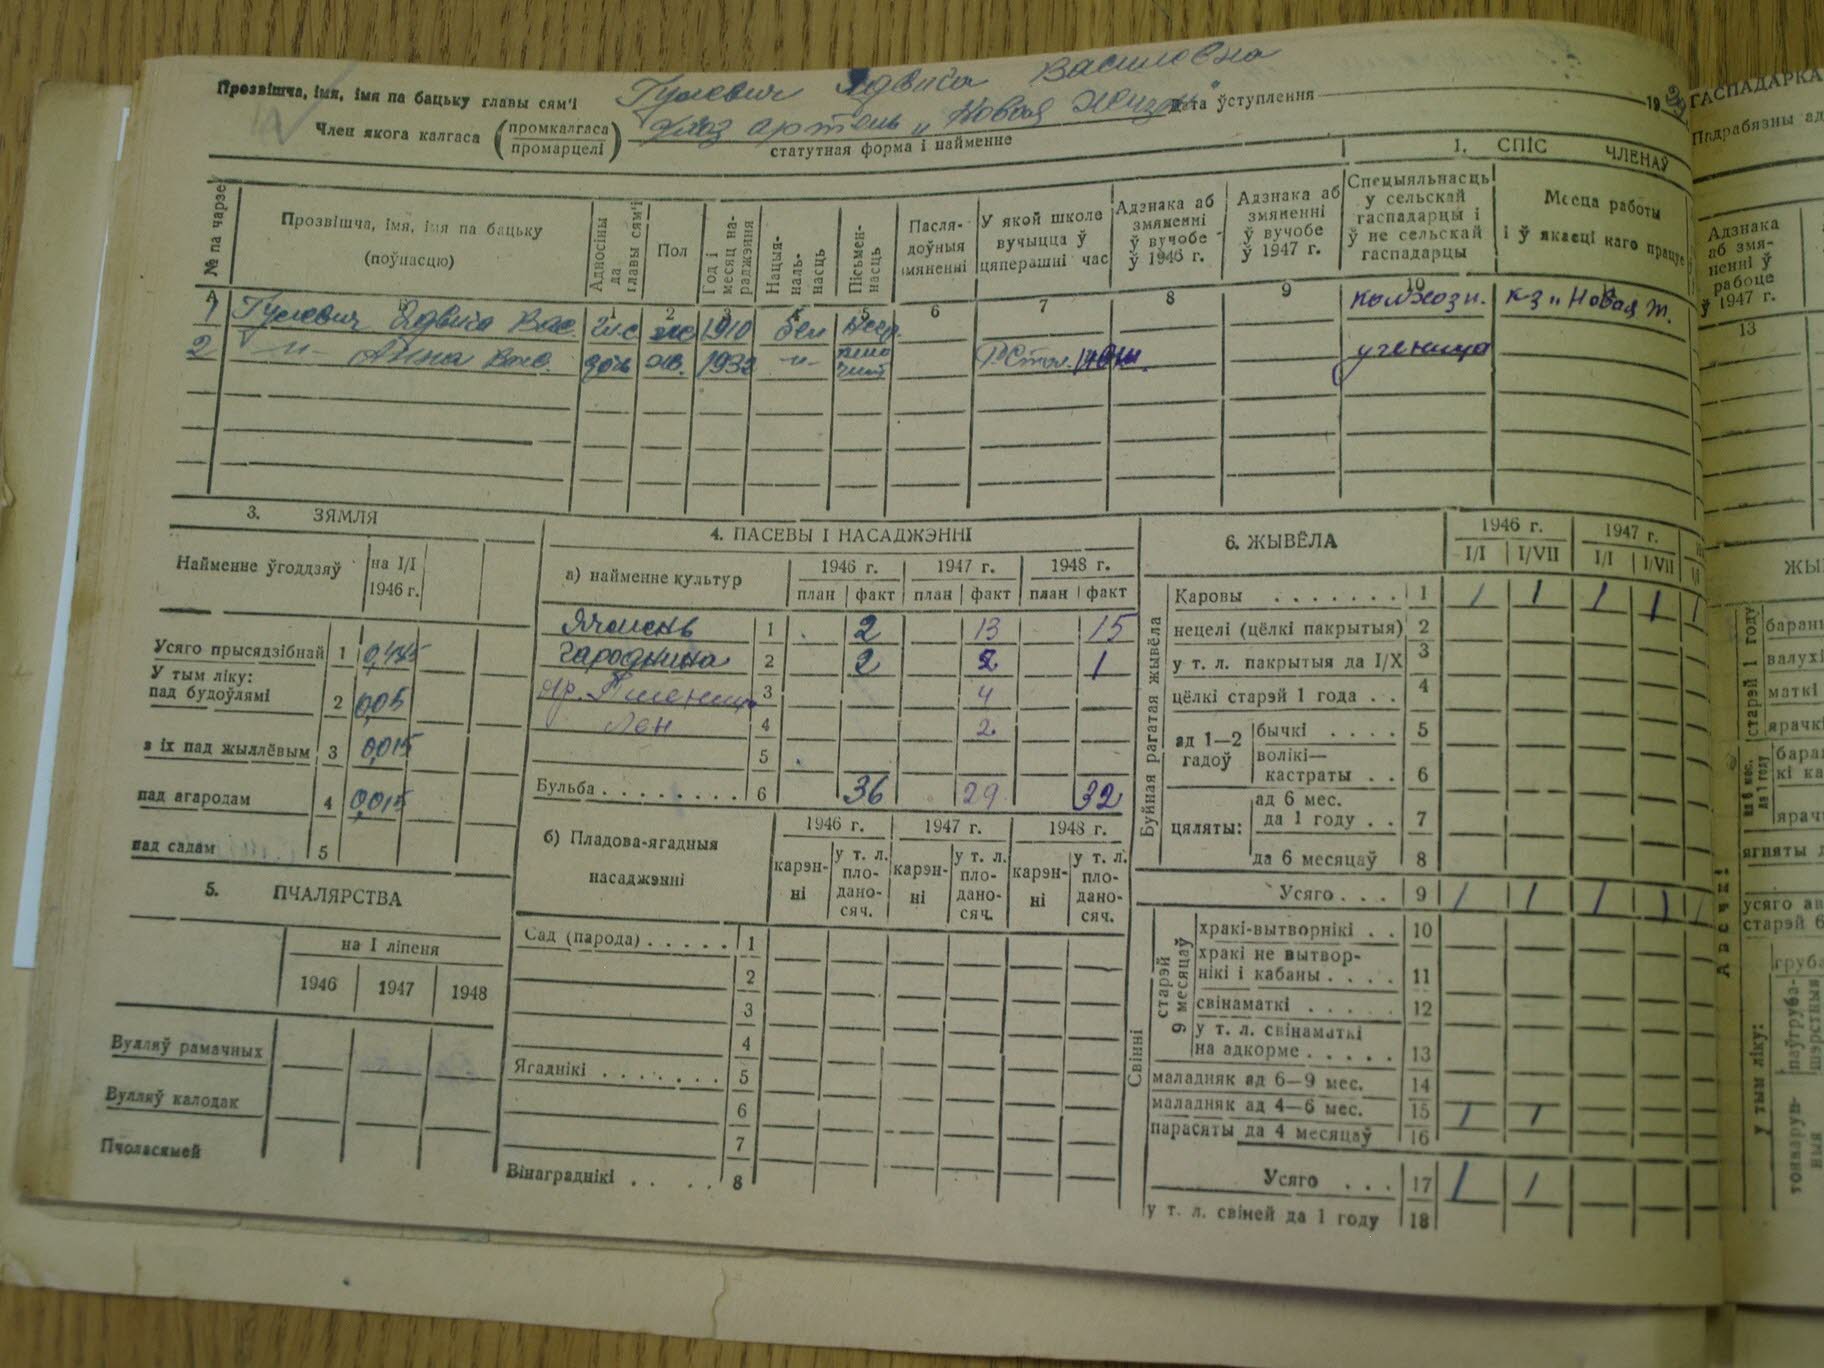 Прозвішча, імя, імя па бацьку главы сям'і Гулевич Ядвига Василовна
Член якога калгаса (промкалгаса промарцелі) артель „Новая Жизнь" Дата ўступлення 19
статутная форма і найменне
1. СПІС ЧЛЕНАЎ
№ па чарзе
Прозвішча, імя, імя па бацьку (поўнасцю)
Адносіны да главы сям'і
Пол
Год і месяц нараджэння
Нацыянальнасць
Пісьменнасць
У якой школе вучыцца ў цяперашні час
Адзнака аб змяненні ў вучобе ў 1946 г.
Адзнака аб змяненні ў вучобе ў 1947 г.
Спецыяльнасць у сельскай гаспадарцы і ў не сельскай гаспадарцы
Месца работы і ў якасці каго працуе
1 2 3 4 5 6 7 8 9 10
1 Гулевич Ядвига Вас. гл.с жс 1910 бел колхозн. к-з „Новая Ж.
2 -„- Анна Вас. дочь жс. 1932 -„- ученица
3. ЗЯМЛЯ
Найменне ўгоддзяў на I/I 1946 г.
Усяго прысядзібнай 1
У тым ліку:
пад будоўлямі 2 0,05
з іх пад жыллёвым 3 0,015
пад агародам 4 0,015
пад садам 5
5. ПЧАЛЯРСТВА
на I ліпеня
1946 1947 1948
Вулляў рамачных
Вулляў калодак
Пчоласямей
4. ПАСЕВЫ І НАСАДЖЭННІ
а) найменне культур 1946 г. 1947 г. 1948 г.
план факт план факт план факт
Ячмень 1 2 13 15
гародніна 2 2 2 1
яр. Пшеница 3 4
Лен 4 2
5
Бульба 6 36 29 32
б) Пладова-ягадныя насаджэнні 1946 г. 1947 г. 1948 г.
карэнні у т. л. пладаносяч. карэнні у т. л. пладаносяч. карэнні у т. л. пладаносяч.
Сад (парода) 1
2
3
4
Ягаднікі 5
6
7
Вінаграднікі 8
6. ЖЫВЁЛА 1946 г. 1947 г.
I/I I/VII I/I I/VII I/I
Буйная рагатая жывёла
Каровы 1 1 1 1 1 1
нецелі (цёлкі пакрытыя) 2
у т. л. пакрытыя да I/X 3
цёлкі старэй 1 года 4
ад 1—2 гадоў
бычкі 5
волікі—кастраты 6
цяляты:
ад 6 мес. да 1 году 7
да 6 месяцаў 8
Усяго 9 1 1 1 1 1
Свінні
старэй 9 месяцаў
хракі-вытворнікі 10
хракі не вытворнікі і кабаны 11
свінаматкі 12
у т. л. свінаматкі на адкорме 13
маладняк ад 6—9 мес. 14
маладняк ад 4—6 мес. 15 1 1
парасяты да 4 месяцаў 16
Усяго 17 1 1
у т. л. свіней да 1 году 18
ГАСПАДАРКА
Падрабязны
Адзнака аб змяненні ў рабоце ў 1947 г.
13
старэй 1 году
маткі
ярачкі
Авечкі
у тым ліку: